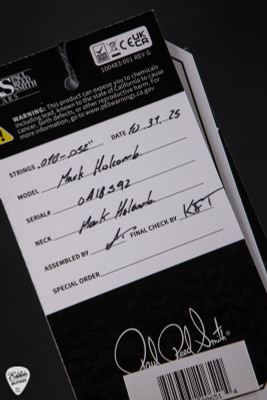 PAUL REED
SMITH
100483:003 REV G
WARNING: This product can expose you to chemicals
known to the State of California to cause
cancer and birth defects or other reproductive harm. For
more information, go to www.p65warnings.ca.gov
STRINGS .010-.052" DATE 10.31.25
MODEL Mark Holcomb
SERIAL# 0A18592
NECK Mark Holcomb
ASSEMBLED BY FINAL CHECK BY KBT
SPECIAL ORDER
Paul Reed Smith